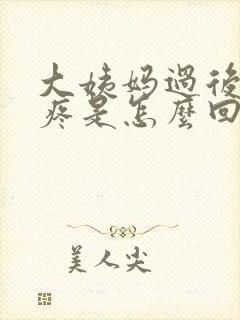 大姨妈過後
疼是怎麼回
美人尖